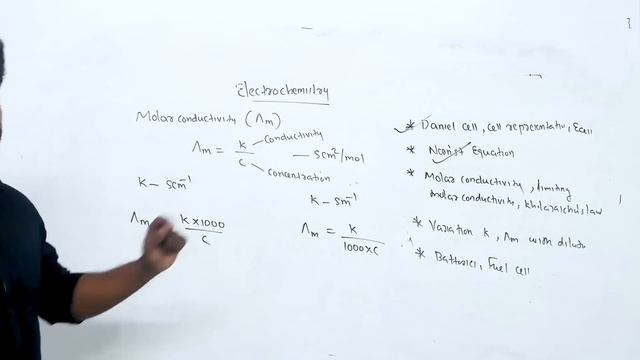 Electrochemistry
Molar conductivity (Λm)
Λm = K/C
conductivity
concentration
— Scm²/mol
K – Scm⁻¹
Λm = K×1000/C
K – Sm⁻¹
Λm = K/1000×C
* Daniel cell, cell representatio, Ecell
* Nernst Equation
* Molar conductivity, limiting
molar conductivity,
law
* Variation K, Λm with dilute
* Batteries, Fuel cell